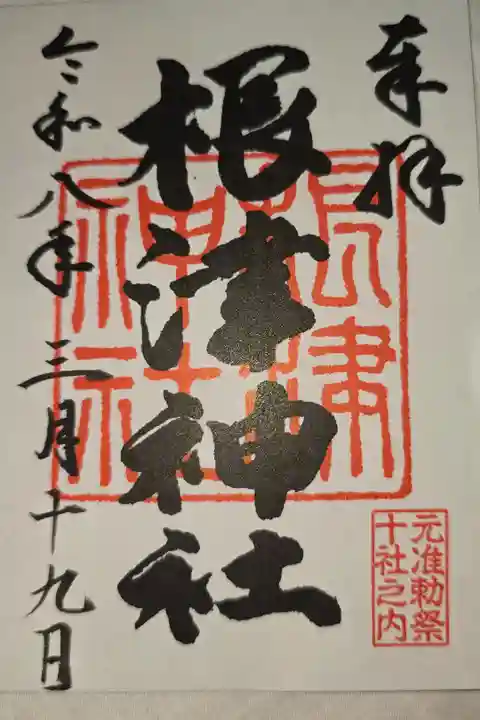 奉拝
根津神社
根津
神社
令和八年三月十九日
元准勅祭
十社之内